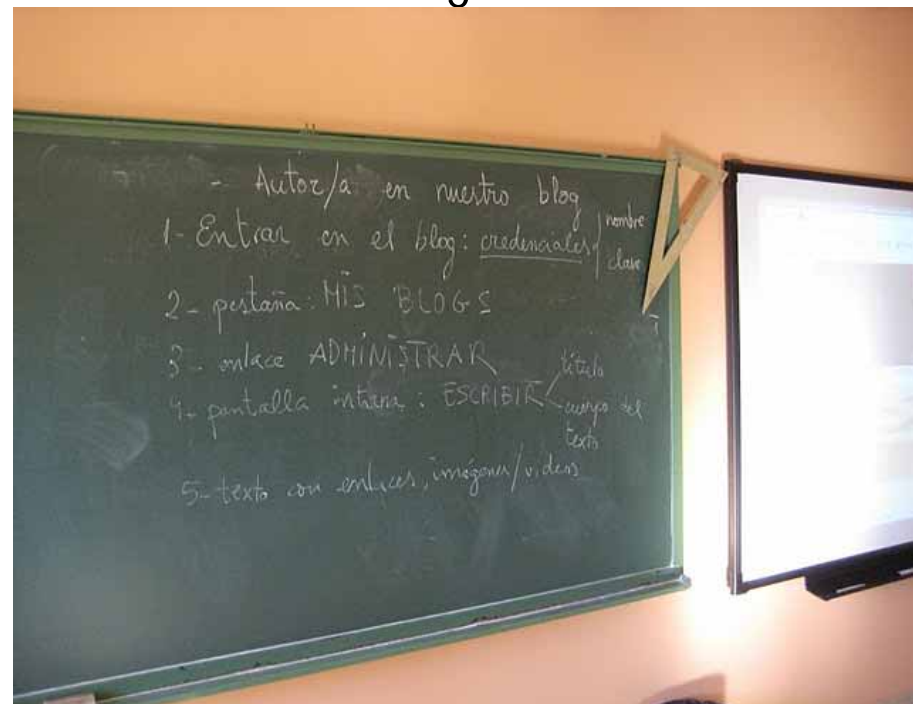 - Autor/a en nuestro blog
1- Entrar en el blog: credenciales nombre
clave
2- pestaña: MIS BLOGS
3- enlace ADMINISTRAR
4- pantalla interna: ESCRIBIR título
cuerpo del
texto
5- texto con enlaces, imágenes/videos